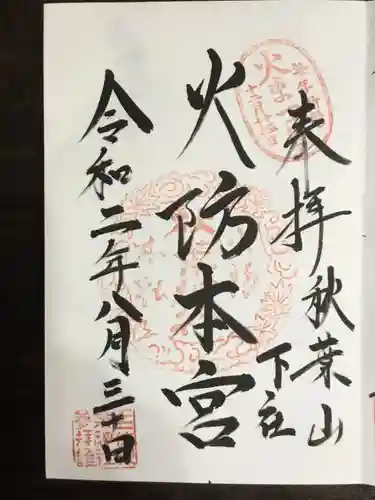 奉拝 秋葉山
下社
火防本宮
令和二年八月三十日